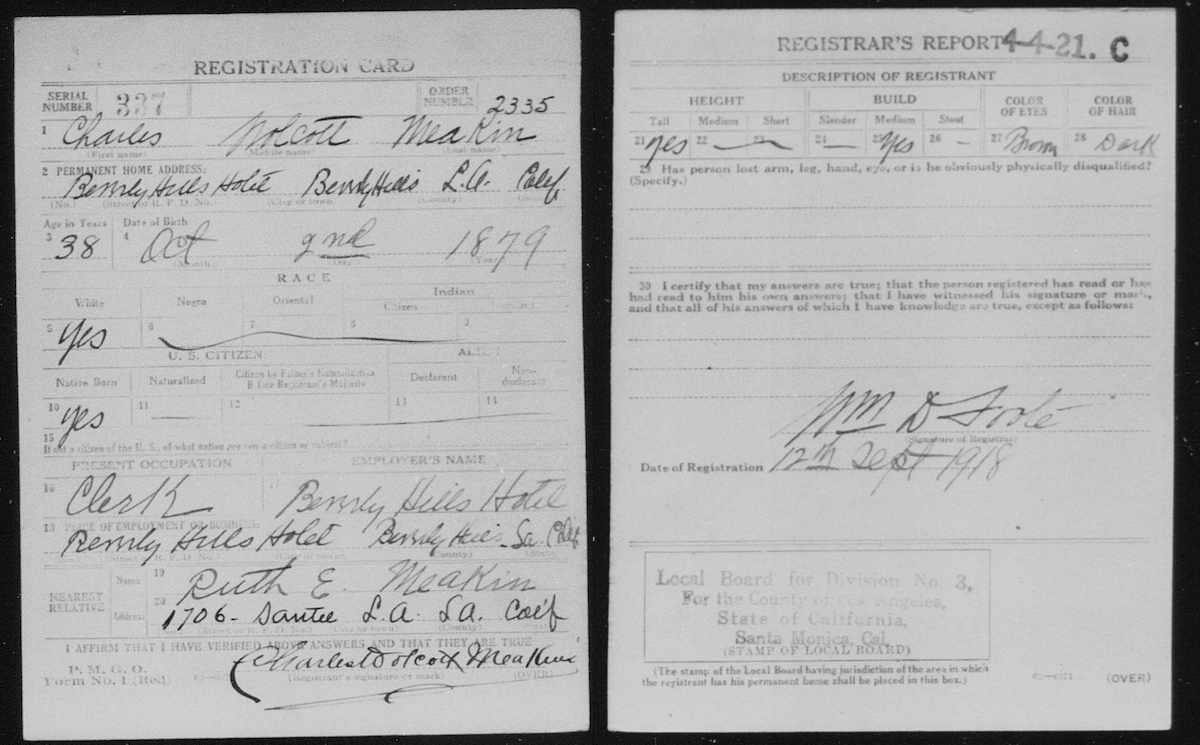 REGISTRATION CARD
SERIAL NUMBER 337 ORDER NUMBER 2335
1 Charles Wolcott Meakin
(First name) (Middle name) (Last name)
2 PERMANENT HOME ADDRESS:
Beverly Hills Hotel Beverly Hills L.A. Calif
(No.) (Street or R. F. D. No.) (City or town) (County) (State)
Age in Years Date of Birth
3 38 4 Oct 2nd 1879
(Month) (Day) (Year)
RACE
White Negro Oriental Indian
Citizen
5 Yes 6 7 8 9
U. S. CITIZEN ALIEN
Native Born Naturalized Citizen by Father's Naturalization Before Registrant's Majority Declarant Non-declarant
10 Yes 11 12 13 14
15
If not a citizen of the U. S., of what nation are you a citizen or subject?
PRESENT OCCUPATION EMPLOYER'S NAME
16 Clerk 17 Beverly Hills Hotel
18 PLACE OF EMPLOYMENT OR BUSINESS:
Beverly Hills Hotel Beverly Hills Calif
(Street or R. F. D. No.) (City or town) (County) (State)
NEAREST RELATIVE
Name 19 Ruth E. Meakin
Address 20 1706 - Santee L.A. L.A. Calif
(Street or R. F. D. No.) (City or town) (County) (State)
I AFFIRM THAT I HAVE VERIFIED ABOVE ANSWERS AND THAT THEY ARE TRUE
P. M. G. O.
Form No. 1 (Red) Charles Wolcott Meakin
(Registrant's signature or mark) (OVER)
REGISTRAR'S REPORT 4-4-21. C
DESCRIPTION OF REGISTRANT
HEIGHT BUILD COLOR OF EYES COLOR OF HAIR
Tall Medium Short Slender Medium Stout
21 Yes 22 — 23 — 24 — 25 Yes 26 - 27 Brown 28 Dark
29 Has person lost arm, leg, hand, eye, or is he obviously physically disqualified?
(Specify.)
30 I certify that my answers are true; that the person registered has read or has
had read to him his own answers; that I have witnessed his signature or mark,
and that all of his answers of which I have knowledge are true, except as follows:
Wm D Foote
(Signature of Registrar)
Date of Registration 12th Sept 1918
Local Board for Division No. 3,
For the County of Los Angeles,
State of California,
Santa Monica, Cal.
(STAMP OF LOCAL BOARD)
(The stamp of the Local Board having jurisdiction of the area in which
the registrant has his permanent home shall be placed in this box.) (OVER)